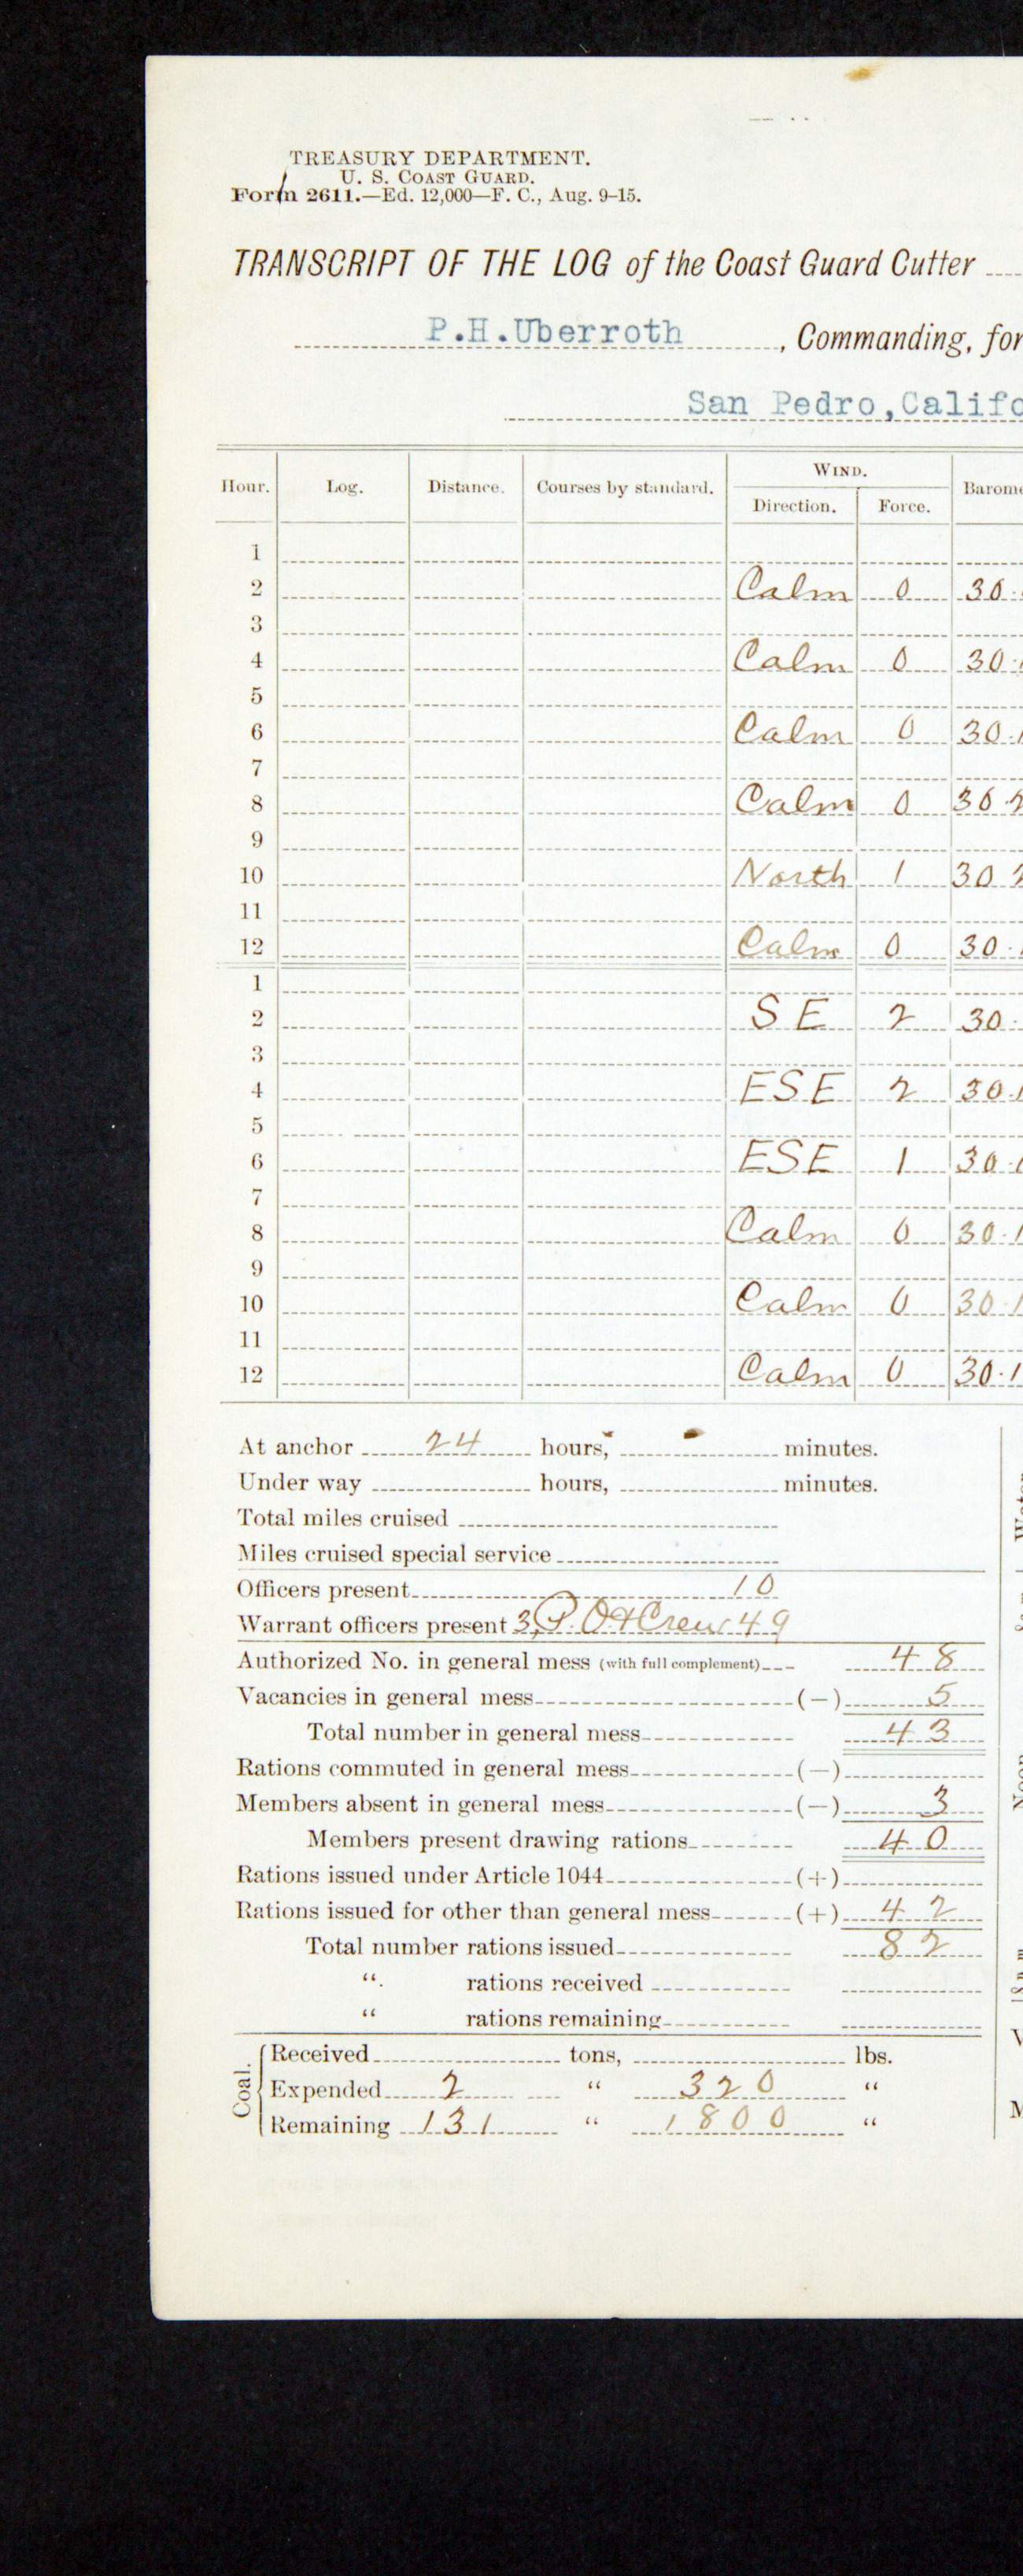 TREASURY DEPARTMENT.
U. S. COAST GUARD.
Form 2611.—Ed. 12,000—F. C., Aug. 9–15.
TRANSCRIPT OF THE LOG of the Coast Guard Cutter
P.H.Uberroth, Commanding, for
San Pedro,Califo
WIND.
Hour. Log. Distance. Courses by standard. Direction. Force. Barome
1
2 Calm 0 30.
3
4 Calm 0 30.
5
6 Calm 0 30.1
7
8 Calm 0 30.2
9
10 North 1 30 2
11
12 Calm 0 30.1
1
2 SE 2 30.
3
4 ESE 2 30.1
5
6 ESE 1 30.1
7
8 Calm 0 30.1
9
10 Calm 0 30.1
11
12 Calm 0 30.1
At anchor 24 hours, - minutes.
Under way hours, minutes.
Total miles cruised
Miles cruised special service
Officers present 10
Warrant officers present 3, P. O & Crew 49
Authorized No. in general mess (with full complement) 48
Vacancies in general mess (—) 5
Total number in general mess 43
Rations commuted in general mess (—)
Members absent in general mess (—) 3
Members present drawing rations 40
Rations issued under Article 1044 (+)
Rations issued for other than general mess (+) 42
Total number rations issued 82
“ rations received
“ rations remaining
Coal.
Received tons, lbs.
Expended 2 “ 320 “
Remaining 131 “ 1800 “
Noon
8 p. m